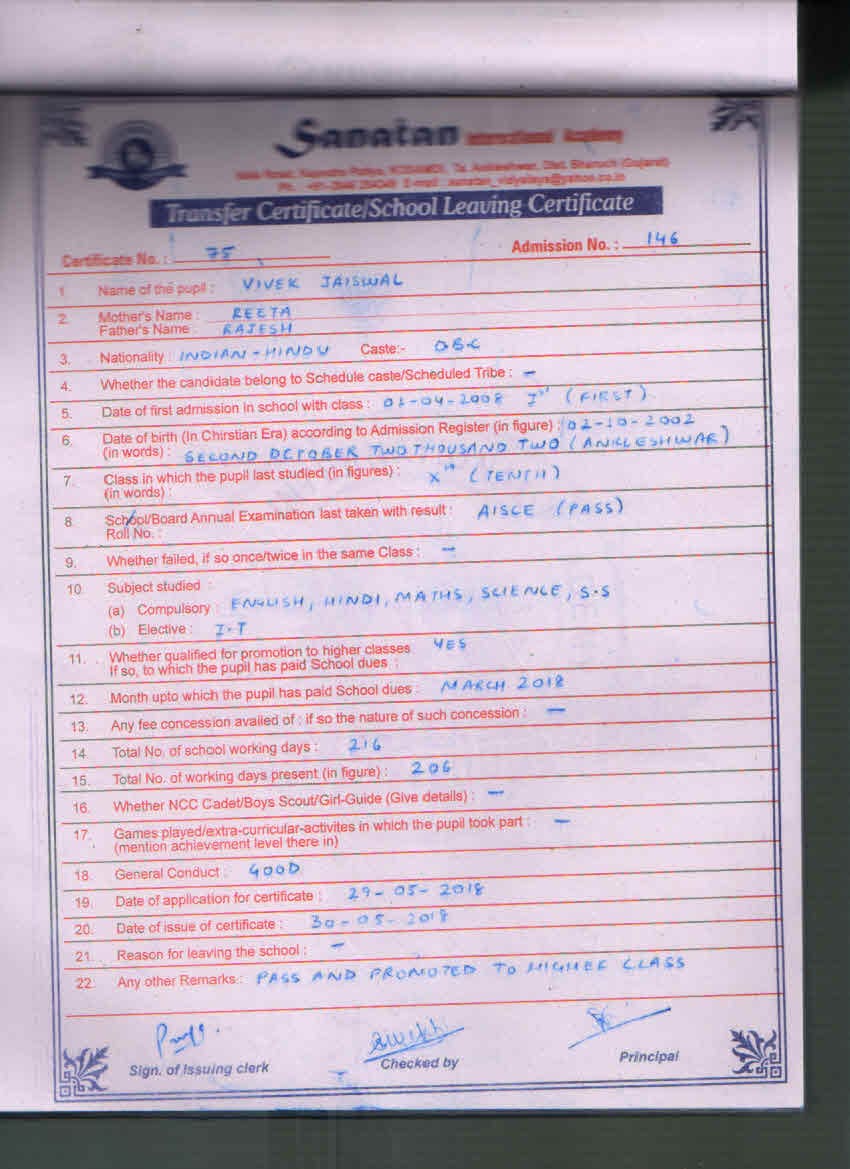 Sanatan International Academy
Ta. Ankleshwar, Dist. Bharuch (Gujarat)
Transfer Certificate/School Leaving Certificate
Certificate No. : 75 Admission No. : 146
1. Name of the pupil : VIVEK JAISWAL
2. Mother's Name : REETA
Father's Name : RAJESH
3. Nationality : INDIAN-HINDU Caste:- OBC
4. Whether the candidate belong to Schedule caste/Scheduled Tribe : -
5. Date of first admission in school with class : 01-04-2008 Ist (FIRST)
6. Date of birth (In Chirstian Era) according to Admission Register (in figure) : 02-10-2002
(in words) : SECOND OCTOBER TWO THOUSAND TWO (ANKLESHWAR)
7. Class in which the pupil last studied (in figures) : Xth (TENTH)
(in words) :
8. School/Board Annual Examination last taken with result : AISCE (PASS)
Roll No. :
9. Whether failed, if so once/twice in the same Class : -
10. Subject studied :
(a) Compulsory : ENGLISH, HINDI, MATHS, SCIENCE, S.S
(b) Elective : I.T
11. Whether qualified for promotion to higher classes YES
If so, to which the pupil has paid School dues :
12. Month upto which the pupil has paid School dues : MARCH 2018
13. Any fee concession availed of : if so the nature of such concession : -
14. Total No. of school working days : 216
15. Total No. of working days present (in figure) : 206
16. Whether NCC Cadet/Boys Scout/Girl-Guide (Give details) : -
17. Games played/extra-curricular-activites in which the pupil took part : -
(mention achievement level there in)
18. General Conduct : GOOD
19. Date of application for certificate : 29-05-2018
20. Date of issue of certificate : 30-05-2018
21. Reason for leaving the school : -
22. Any other Remarks : PASS AND PROMOTED TO HIGHER CLASS
Sign. of Issuing clerk Checked by Principal